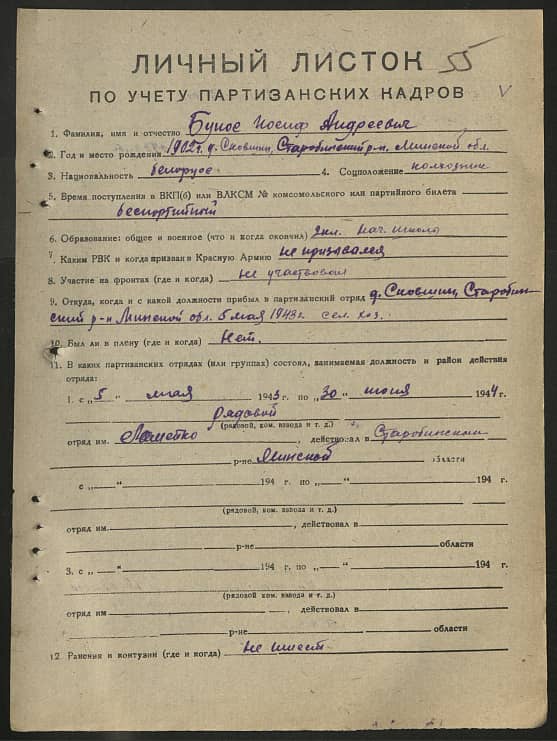 ЛИЧНЫЙ ЛИСТОК 55
ПО УЧЕТУ ПАРТИЗАНСКИХ КАДРОВ V
1. Фамилия, имя и отчество Бунос Иосиф Андреевич
2. Год и место рождения 1902 г. д. Сковшин, Старобинский р-н. Минской обл.
3. Национальность белорус 4. Соцположение колхозник
5. Время поступления в ВКП(б) или ВЛКСМ № комсомольского или партийного билета
беспартийный
6. Образование: общее и военное (что и когда окончил) 2 кл. нач. школы
7. Каким РВК и когда призван в Красную Армию не призывался
8. Участие на фронтах (где и когда) не участвовал
9. Откуда, когда и с какой должности прибыл в партизанский отряд д. Сковшин, Старобин-
ский р-н Минской обл. 5 мая 1943 г. сел. хоз.
10. Был ли в плену (где и когда) Нет.
11. В каких партизанских отрядах (или группах) состоял, занимаемая должность и район действия
отряда:
1. с „5" мая 1943 г. по „30" июня 1944 г.
рядовой
(рядовой, ком. взвода и т. д.)
отряд им. , действовал в Старобинском
р-не Минской области
с „ " 194 г. по „ " 194 г.
(рядовой, ком. взвода и т. д.)
отряд им. , действовал в
р-не области
3. с „ " 194 г. по „ " 194 г.
(рядовой, ком. взвода и т. д.)
отряд им , действовал в
р-не области
12. Ранения и контузии (где и когда) не имеет